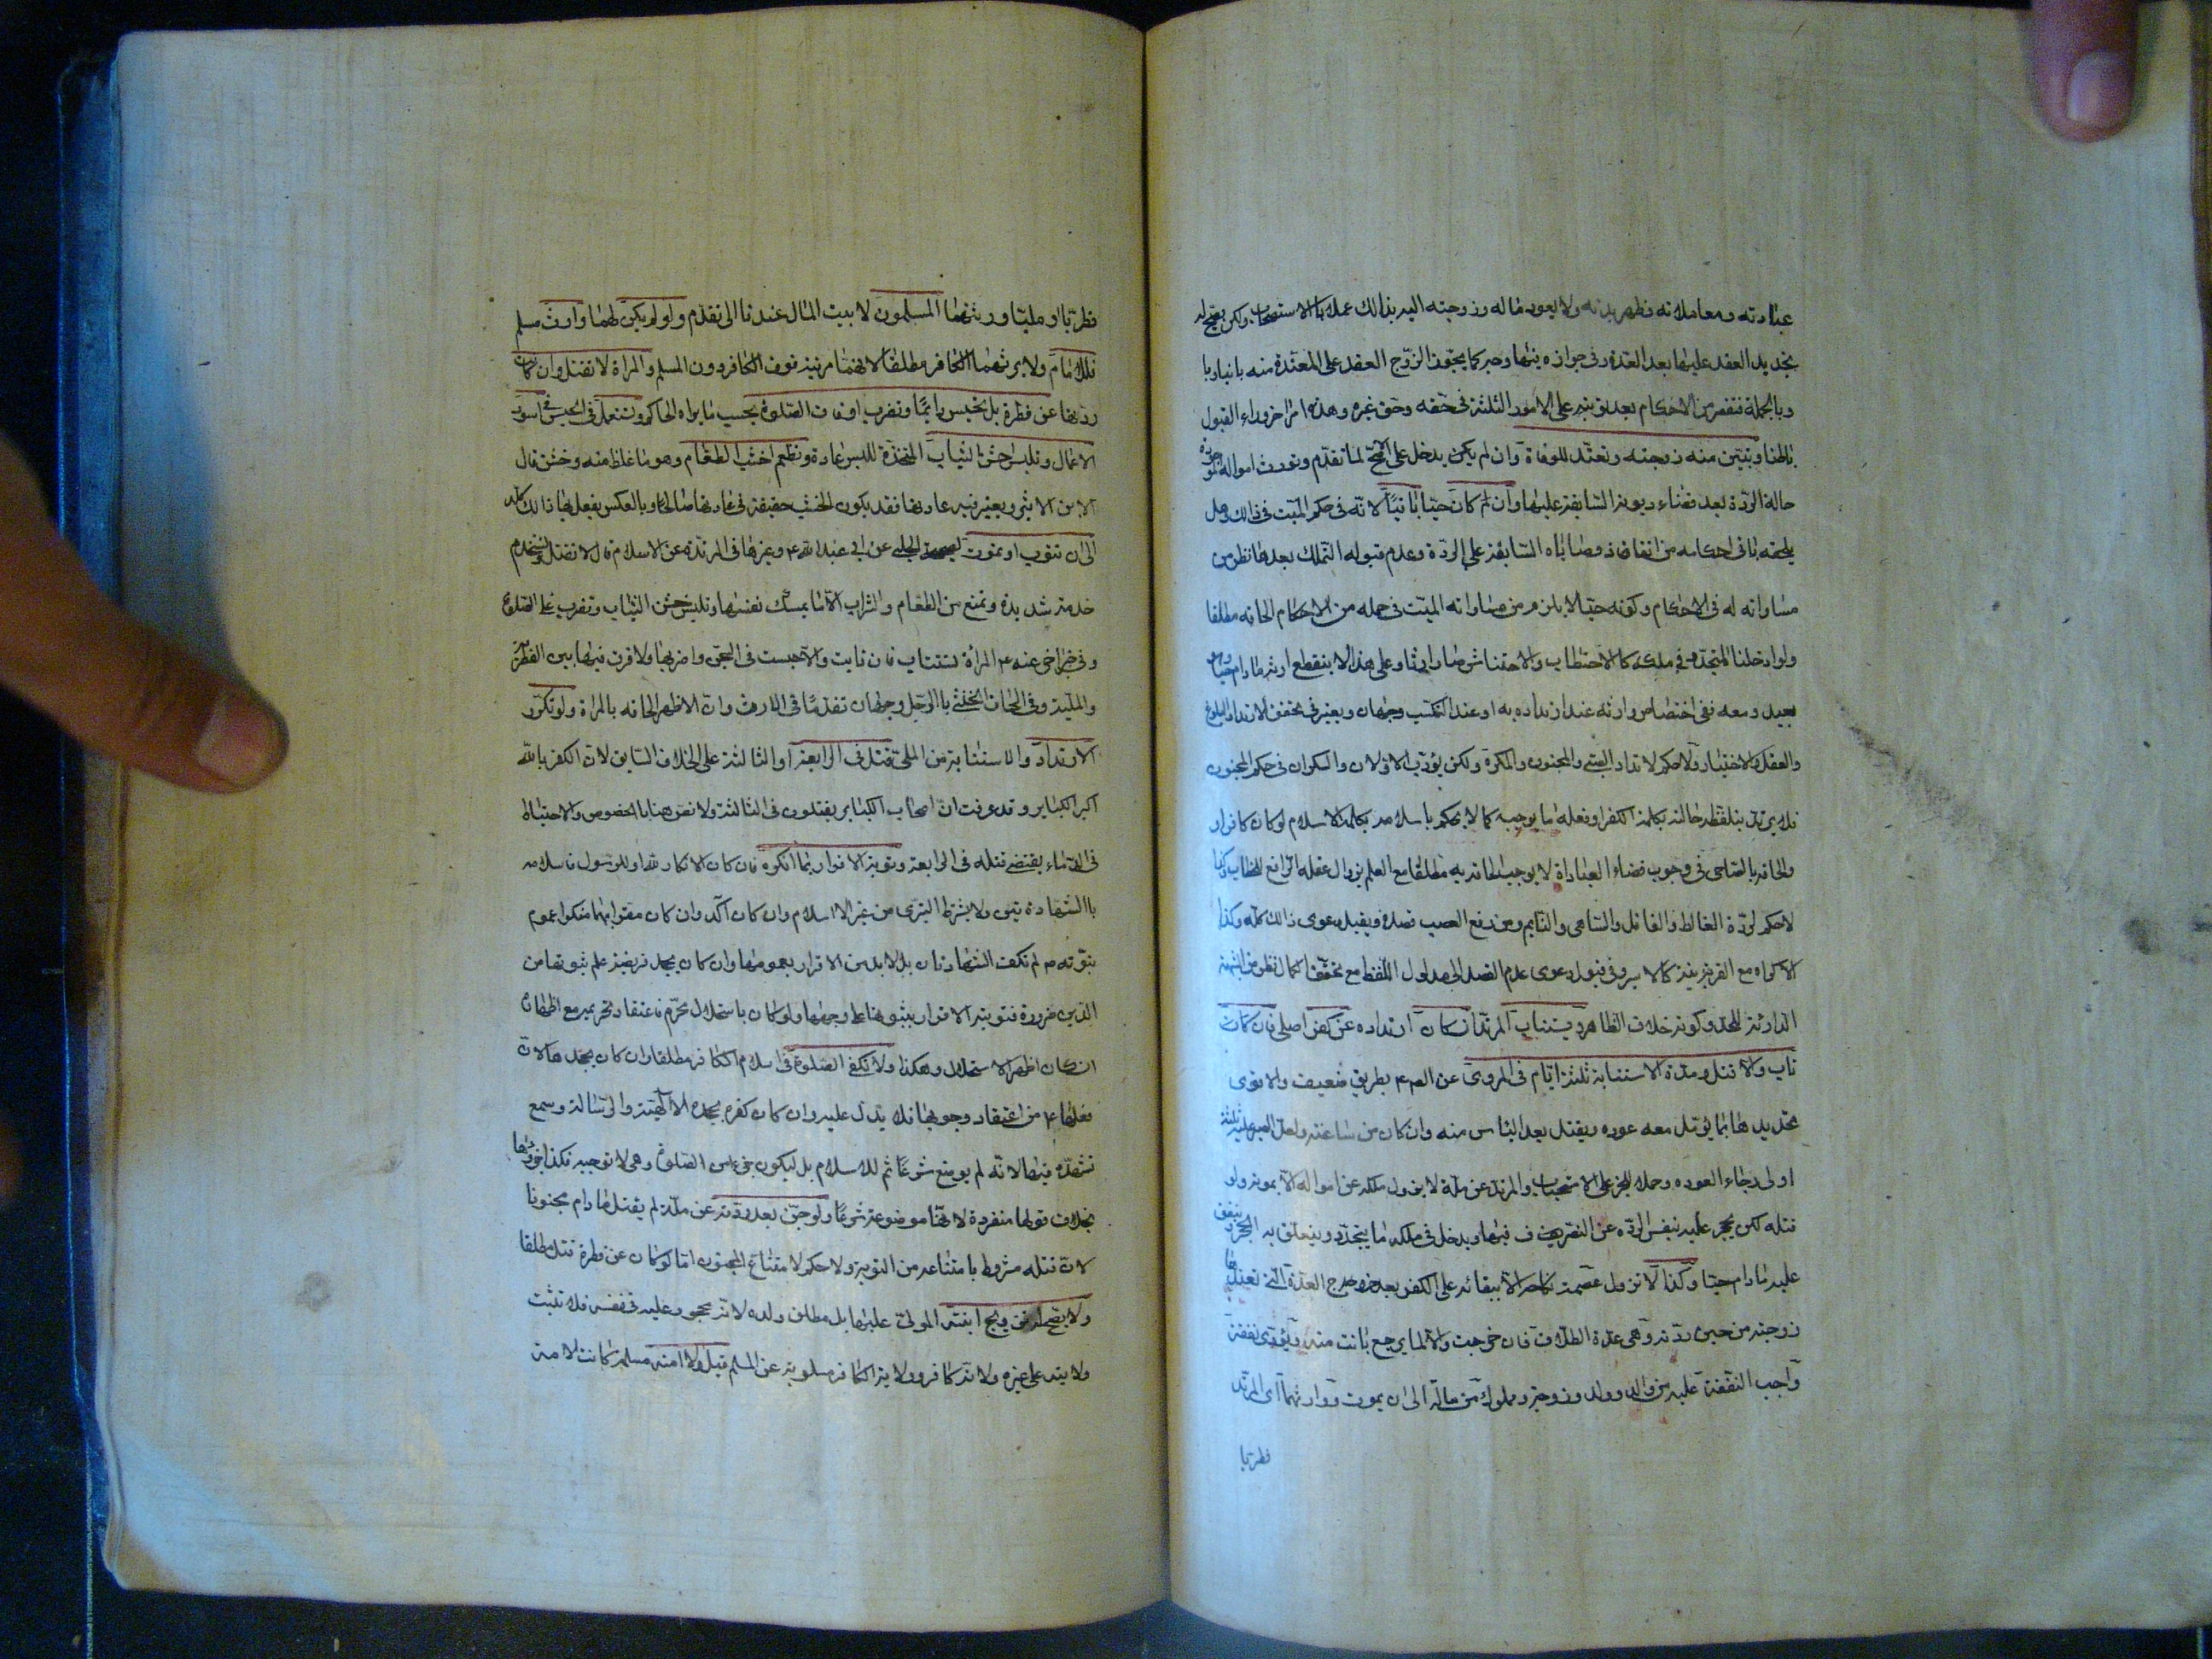 عباداته ومعاملاته وطهر بدنه ولا يعود ماله وزوجته اليه بذالك عملا بالاستصحاب ولكن يصح له
تجديد العقد عليها بعد العدة وفي جوازه فيها وجه كما يجوز للزوج العقد على المعتدة منه باينا وبا
وبالجملة فيقتصر من الاحكام بعد توبته على الامور الثلثة في حقه وحق غيره وهذا امر اخر وراء القبول
باطنا وتبين منه زوجته وتعتد للوفاة وان لم يكن يدخل على الاصح لما تقدم وتورث امواله الموجودة
حالة الردة بعد قضاء ديونه السابقة عليها وان كان حيا باقيا لانه في حكم الميت في ذالك وهل
يلحقه باقي احكامه من انفاذ وصاياه السابقة على الردة وعدم قبوله التملك بعدها نظر من
مساواته له في الاحكام وكونه حيا لا يلزم من مساواته الميت في جمله من الاحكام الحاقه مطلقا
ولو ادخلنا المتجدد في ملكه كالاحتطاب والاحتشاش صار ارثا وعلى هذا لا ينقطع ارثه مادام حيا وهو
بعيد ومعه ففي اختصاص وارثه عند ارتداده به او عند التكسب وجهان ويعتبر في تحقق الارتداد البلوغ
والعقل والاختيار ولا حكم لارتداد الصبي والمجنون والمكره ولكن يؤدب الاولان والسكران في حكم المجنون
فلا يرتد بتلفظه حالته بكلمة الكفر او فعله ما يوجبه كما لا يحكم باسلامه بكلمة الاسلام لو كان كافرا
والحاقه بالصاحي في وجوب قضاء العبادات لا يوجب الحاقه به مطلقا مع العلم بزوال عقله الرافع للخطاب وكذا
لا حكم لردة الغالط والغافل والساهي والنايم ومن دفع الغضب قصده ويقبل دعوى ذالك كله وكذا
الاكراه مع القرينة كالاسير وفي قبول دعوى عدم القصد الى مدلول اللفظ مع تحقق الكمال نظر من الشبهة
الدارئة للحد وكونه خلاف الظاهر ويستتاب المرتد ان كان ارتداده عن كفر اصلي فان كانت
تاب والا قتل ومدة الاستتابة ثلثة ايام في المروي عن الص ع بطريق ضعيف والاقوى
تحديدها بما يؤمل معه عوده ويقتل بعد الياس منه وان كان من ساعته ولعل الصبر عليه ثلثة
اولى رجاء العوده وحملا للخبر على الاستحباب والمرتد عن ملة لا يزول ملكه عن امواله الا بموته ولو
قتله لكن يحجر عليه بنفس الردة عن التصرف فيها ويدخل في ملكه ما يتجدد ويتعلق به الحجر وينفق
عليه مادام حيا وكذا لا تزول عصمة نكاحه الا ببقائه على الكفر بعد خروج العدة التي تعتدها
زوجته من حين ردته وهي عدة الطلاق فان خرجت ولما يرجع بانت منه ويؤدى نفقة
واجب النفقة عليه من والد وولد وزوجة ومملوك من ماله الى ان يموت ووارثهما اى المرتد
فطريا
فطريا او مليا ورثتهما المسلمون لا بيت المال عندنا الى تقدم ولو لم يكن لهما وارث مسلم
فللامام ولا يرثهما الكافر مطلقا لانهما مرتبة فوق الكافر ودون المسلم والمراة لا تقتل وان كانت
ردتها عن فطرة بل تحبس دايما وتضرب اوقات الصلوة بحسب ما يراه الحاكم وتستعمل في الحبس في اسوء
الاعمال وتلبس خشن الثياب المتخذة للبس عادة وتطعم اجشب الطعام وهو ما غلظ منه وخشن قال
الابن الاثير ويعتبر فيه عادتها فقد يكون الجشب حقيقة في عادتها صالحا وبالعكس يفعل بها ذالك كله
الى ان تتوب او تموت لصحيحة الحلبي عن ابي عبد الله ع وغيرها في المرتدة عن الاسلام قال لا تقتل وتستخدم
خدمة شديدة وتمنع من الطعام والشراب الا ما يمسك نفسها وتلبس خشن الثياب وتضرب على الصلوة
وفي خبر اخر عنه ع المراة تستتاب فان تابت والا حبست في السجن واضربها ولا فرق فيها بين الفطرية
والملية وفي الحاق الخنثى بالرجل وجهان تقدما في اللارث وان الاظهر الحاقه بالمراة ولو تكرر
الارتداد والاستتابة من الملي قتل في الرابعة او الثالثة على الخلاف السابق لان الكفر بالله
اكبر الكباير وقد عرفت ان اصحاب الكباير يقتلون في الثالثة ولا نص هنا بالخصوص والاحتياط
في الدماء يقتضي قتله في الرابعة وتوبة الاقرار بما انكره فان كان الانكار لله او للرسول فاسلامه
بالشهادتين ولا يشترط التبرى من غير الاسلام وان كان آكد وان كان مقرا بهما منكرا عموم
نبوته ص لم تكف الشهادتان بل لا بد من الاقرار بعمومها وان كان بجحد فريضة علم ثبوتها من
الدين ضرورة فتوبته الاقرار بثبوتها على وجهها ولو كان باستحلال محرم فاعتقاد تحريمه مع اظهاره
ان كان اظهر الاستحلال وهكذا ولا تكفي الصلوة في اسلام الكافر مطلقا وان كان بجحدها لان
فعلها اعم من اعتقاد وجوبها فلا يدل عليه وان كان كفره بجحده الالهية والرسالة وسمع
تشهده فيها لانه لم يوضع شرعا ثم للاسلام بل ليكون جزءا من الصلوة وهي لا توجبه فكذا جزؤها
بخلاف قولها منفردة لانها موضوعة شرعا له ولو جن بعد ردته عن ملة لم يقتل مادام مجنونا
لان قتله مشروط بامتناعه من التوبة ولا حكم لامتناع المجنون اما لو كان عن فطرة قتل مطلقا
ولا يصح له تزويج ابنته المولى عليها بل مطلق ولده لانه محجور عليه في نفسه فلا تثبت
ولايته على غيره ولانه كافر وولاية الكافر مسلوبة عن المسلم قيل ولا امته مسلمة كانت الامة